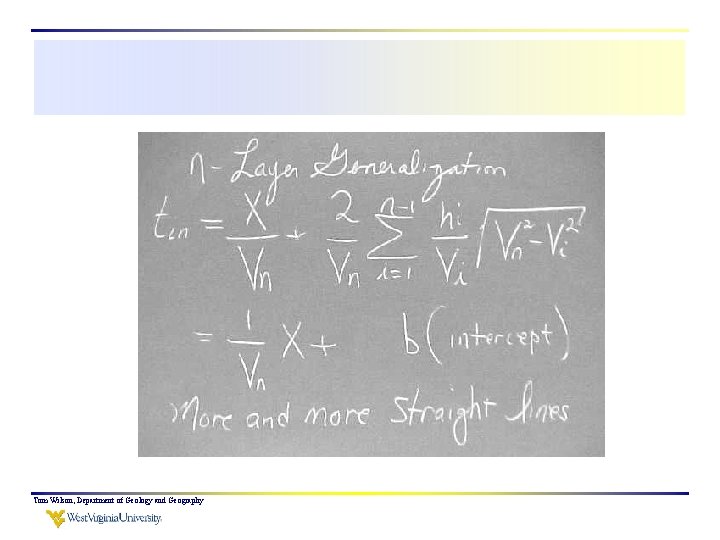 n-Layer Generalization
t_in = X/V_n + 2/V_n \sum_{i=1}^{n-1} h_i/V_i \sqrt{V_n^2 - V_i^2}
= 1/V_n X + b (intercept)
More and more straight lines
Tom Wilson, Department of Geology and Geography
West Virginia University